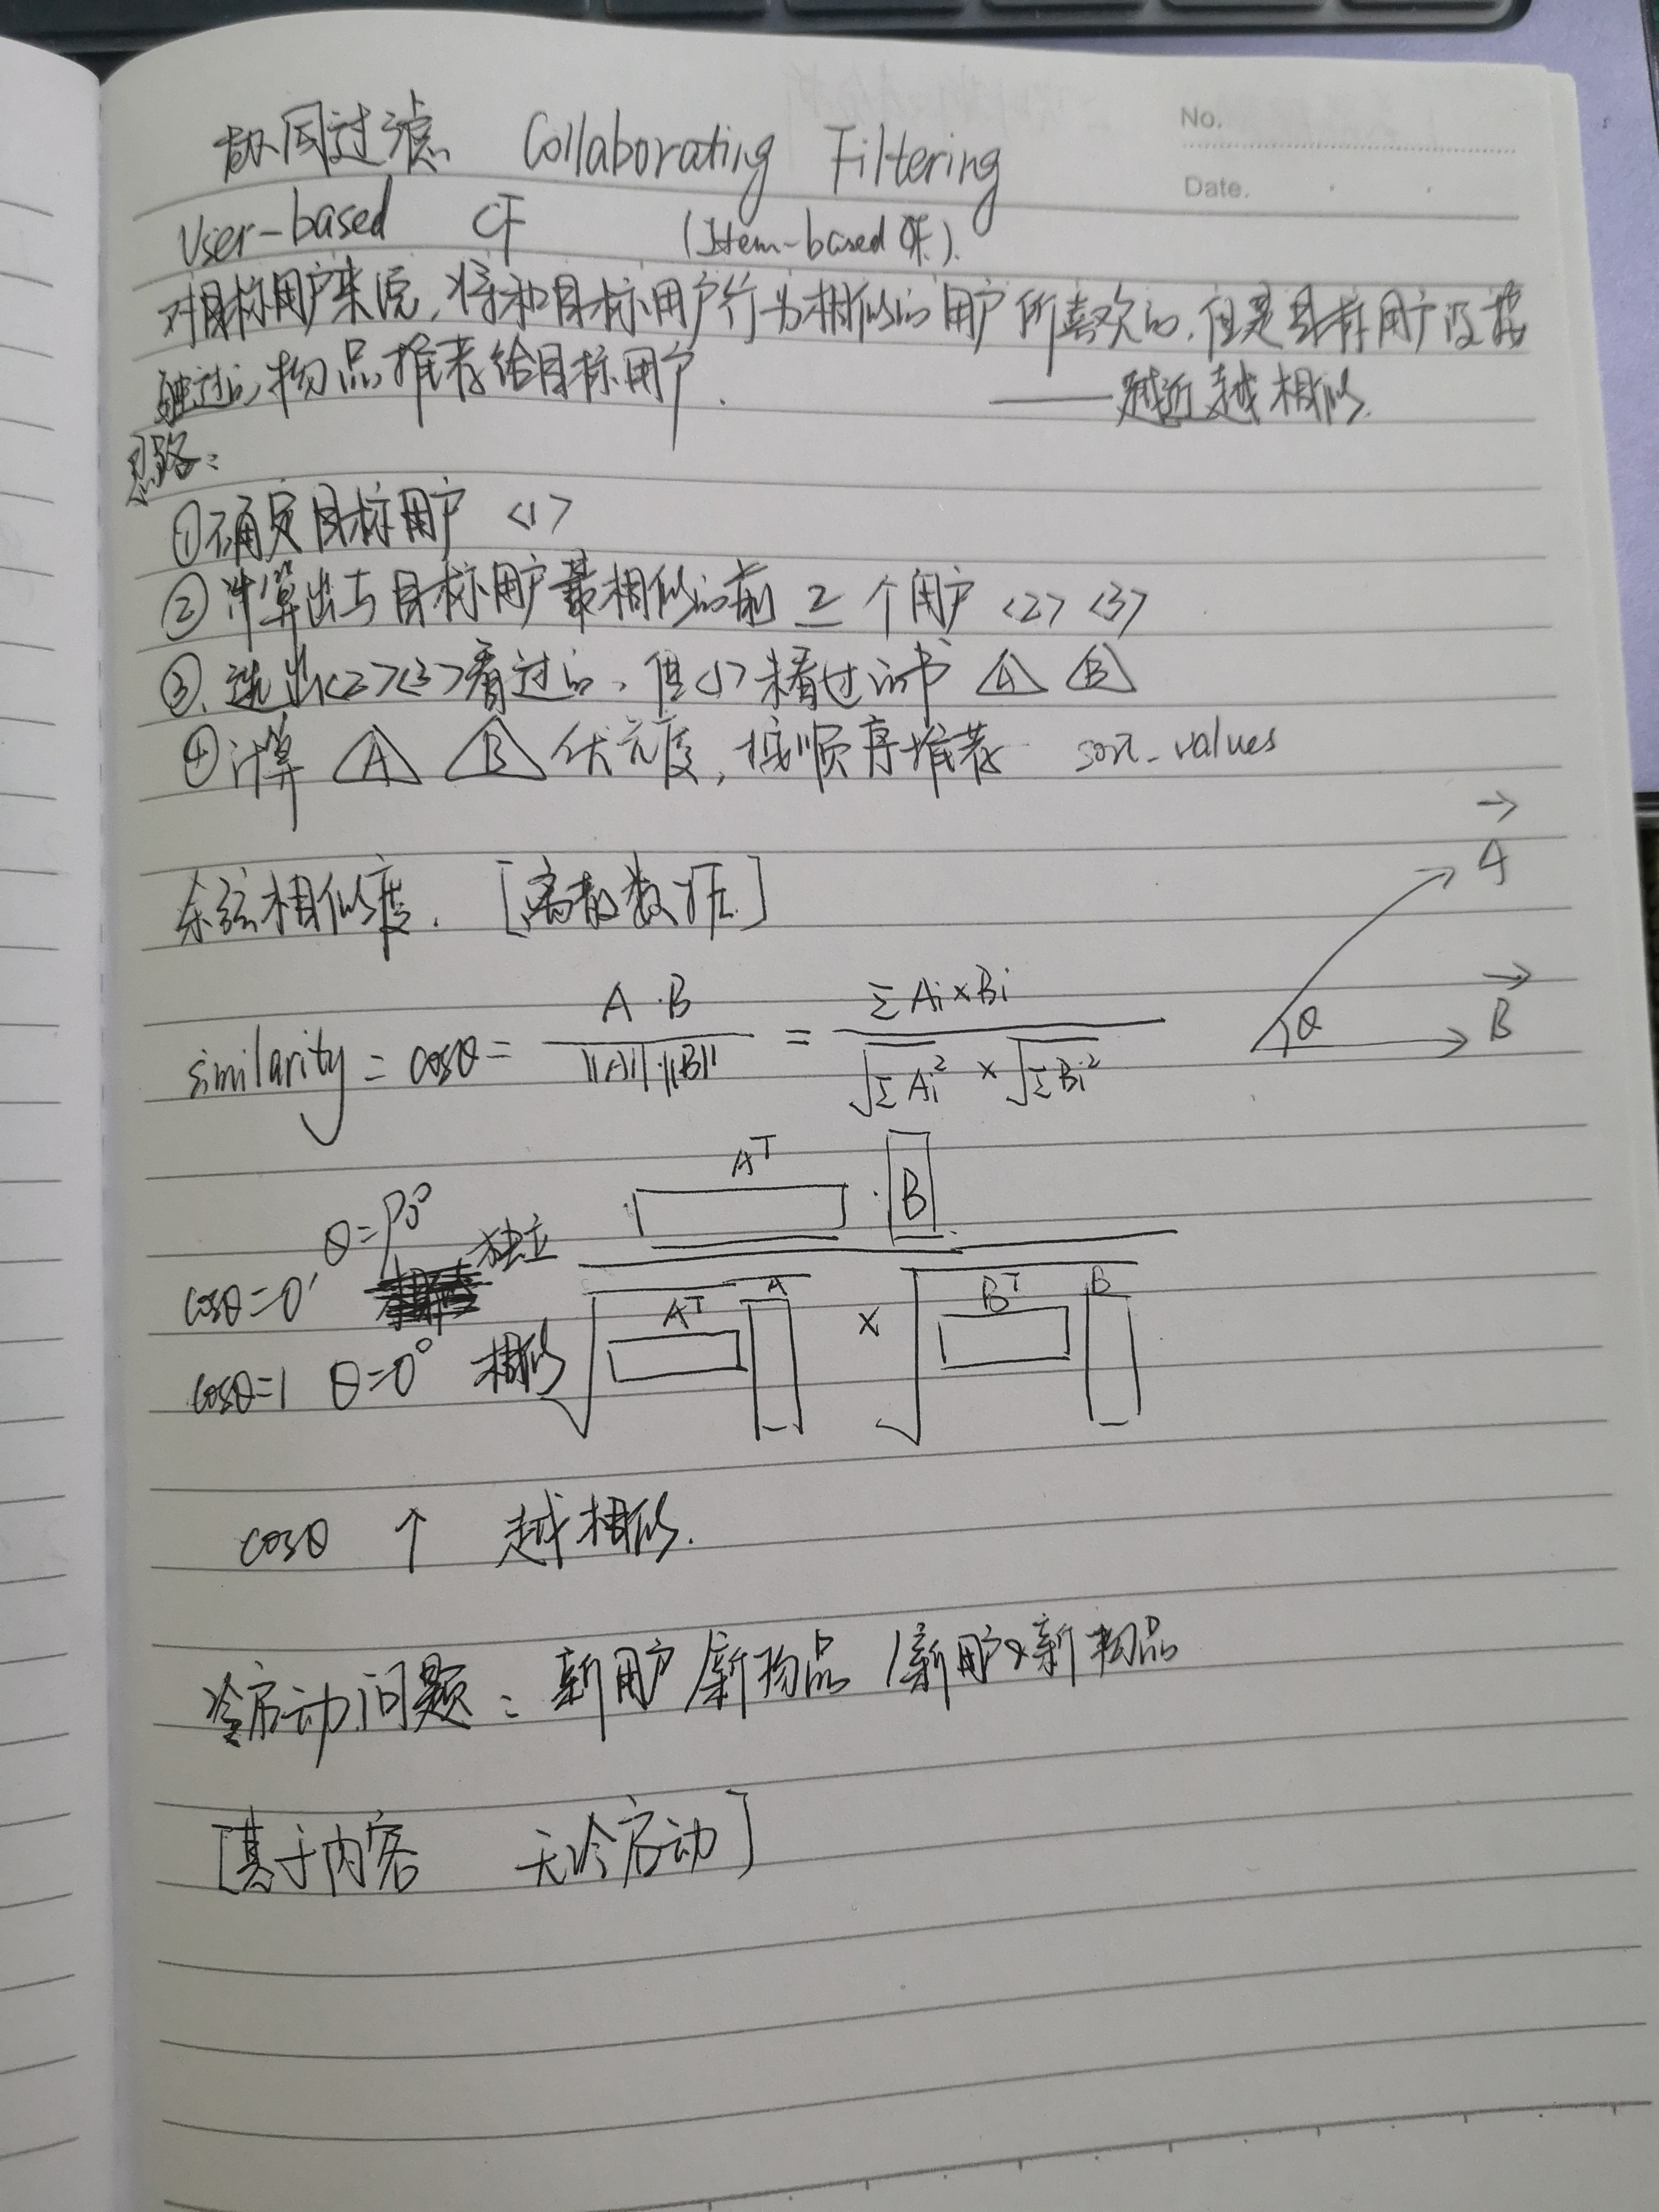 协同过滤 Collaborating Filtering
No.
Date.
User-based CF (Item-based CF).
对目标用户来说,将和目标用户行为相似的用户所喜欢的,但是目标用户没接
触过的物品推荐给目标用户. ——越近越相似.
思路:
①确定目标用户 <1>
②计算出与目标用户最相似的前 2 个用户 <2> <3>
③.选出<2><3>看过的,但<1>未看过的书 A B
④计算 A B 优先度,按顺序推荐 sort_values
余弦相似度. [离散数据]
A
B
θ
similarity = cosθ = A·B / ||A||·||B|| = ΣAi×Bi / √ΣAi² × √ΣBi²
Aᵀ · B
cosθ=0, θ=90° 独立
Aᵀ A × Bᵀ B
cosθ=1 θ=0° 相似
cosθ ↑ 越相似.
冷启动问题: 新用户/新物品/新用户×新物品
[基于内容 无冷启动]